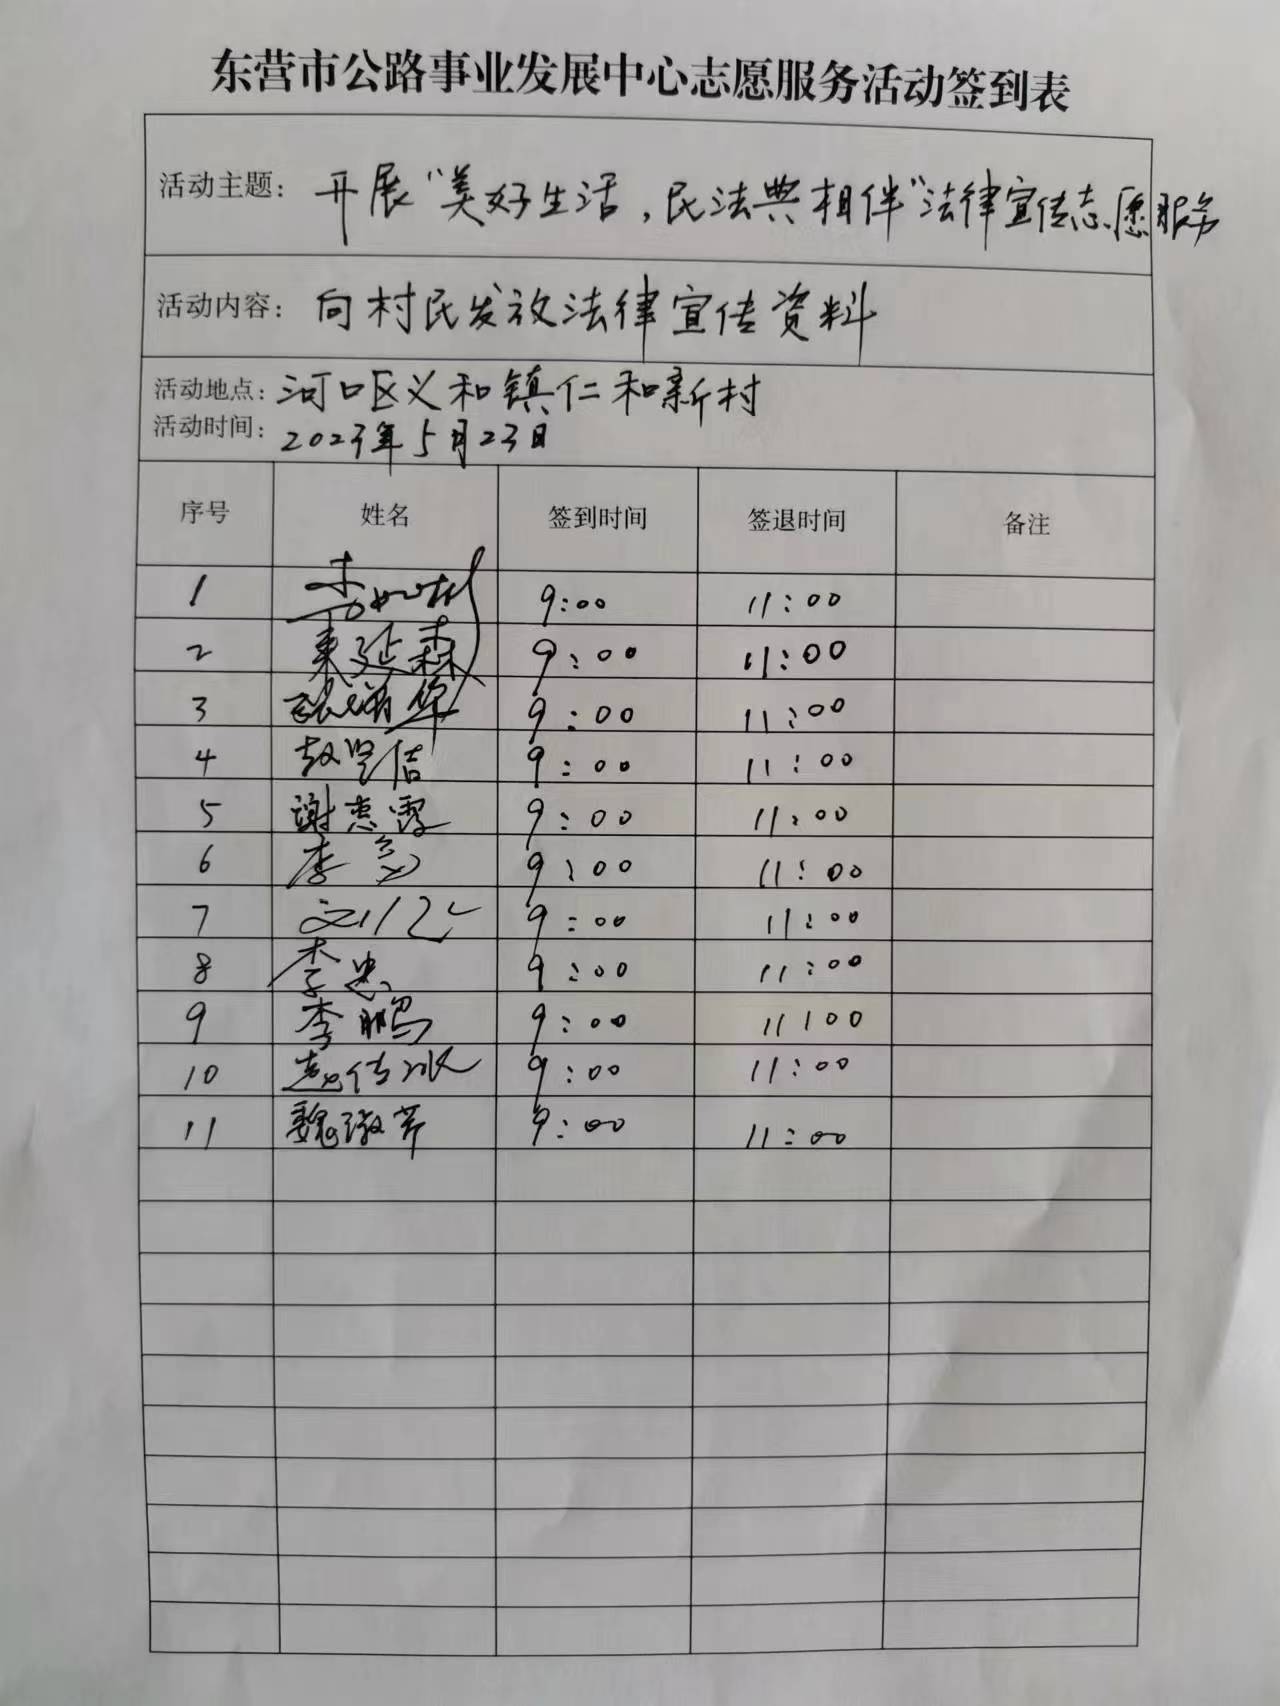 东营市公路事业发展中心志愿服务活动签到表
活动主题：开展“美好生活，民法典相伴”法律宣传志愿服务
活动内容：向村民发放法律宣传资料
活动地点：河口区义和镇仁和新村
活动时间：2023年5月23日
序号 姓名 签到时间 签退时间 备注
1 9:00 11:00
2 延森 9:00 11:00
3 9:00 11:00
4 赵坚信 9:00 11:00
5 谢惠霞 9:00 11:00
6 李 9:00 11:00
7 9:00 11:00
8 李忠 9:00 11:00
9 李鹏 9:00 11:00
10 9:00 11:00
11 魏 9:00 11:00